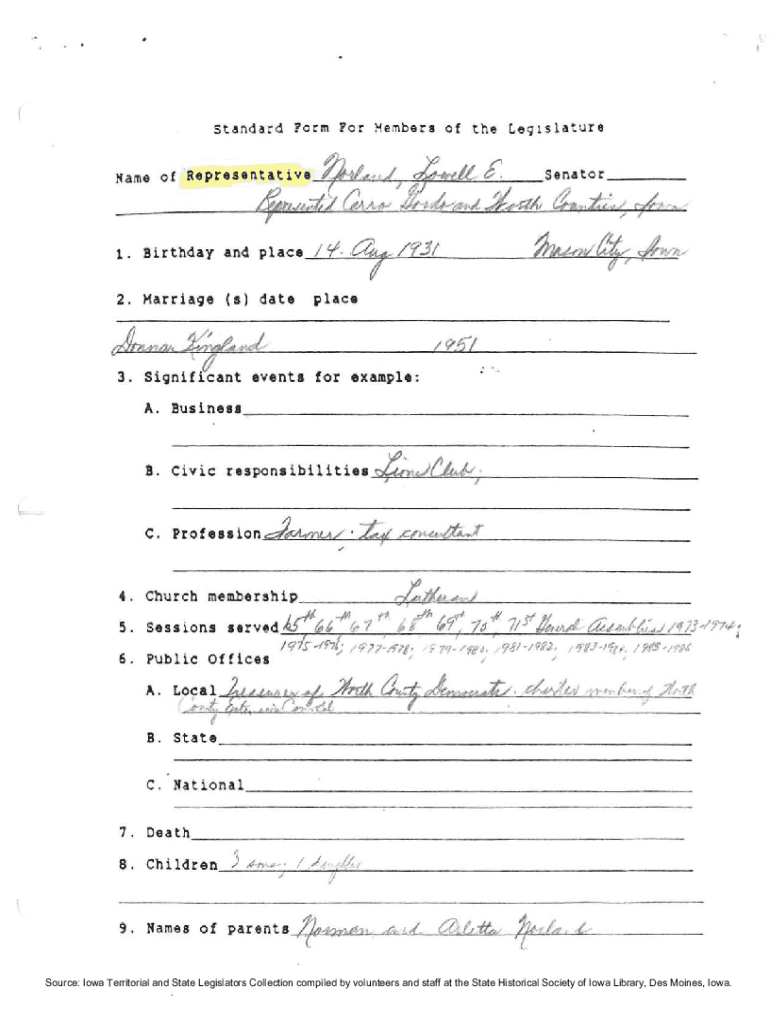 Standard Form For Members of the Legislature
Name of Representative Norland, Lowell E. Senator
Represented Cerro Gordo and Worth Counties, Iowa
1. Birthday and place 14 Aug 1931 Mason City, Iowa
2. Marriage (s) date place
Donna Kingland 1951
3. Significant events for example:
A. Business
B. Civic responsibilities Lions Club;
C. Profession Farmer · tax consultant
4. Church membership Lutheran
5. Sessions served 65th 66th 67th, 68th 69th, 70th, 71st General Assemblies 1973-1974;
1975-1976; 1977-1978; 1979-1980; 1981-1982, 1983-1984, 1985-1986
6. Public Offices
A. Local Treasurer of Worth County Democrats · charter member of Worth
County Extension Council
B. State
C. National
7. Death
8. Children 3 sons; 1 daughter
9. Names of parents Norman and Arletta Norland
Source: Iowa Territorial and State Legislators Collection compiled by volunteers and staff at the State Historical Society of Iowa Library, Des Moines, Iowa.